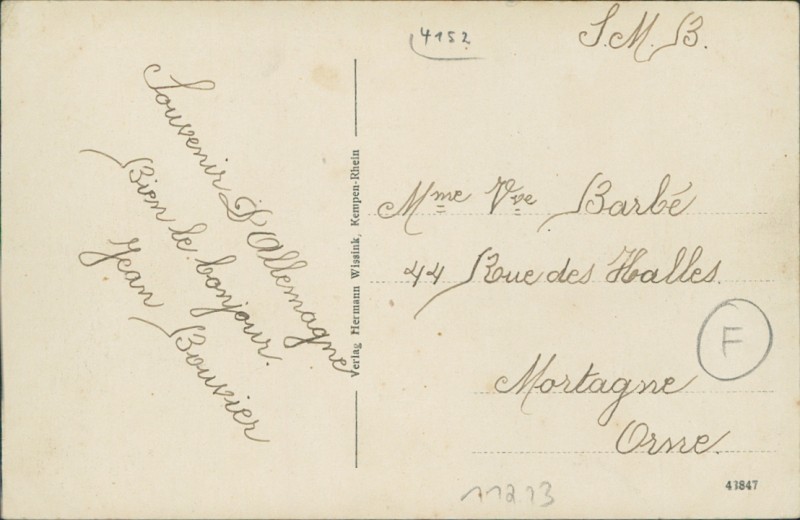 4152
S.M.B.
Souvenir D'Allemagne
Bien le bonjour.
Jean Bouvier
Verlag Hermann Wissink, Kempen-Rhein
Mme Vve Barbé
44 Rue des Halles.
F
Mortagne
Orne.
11213
43847